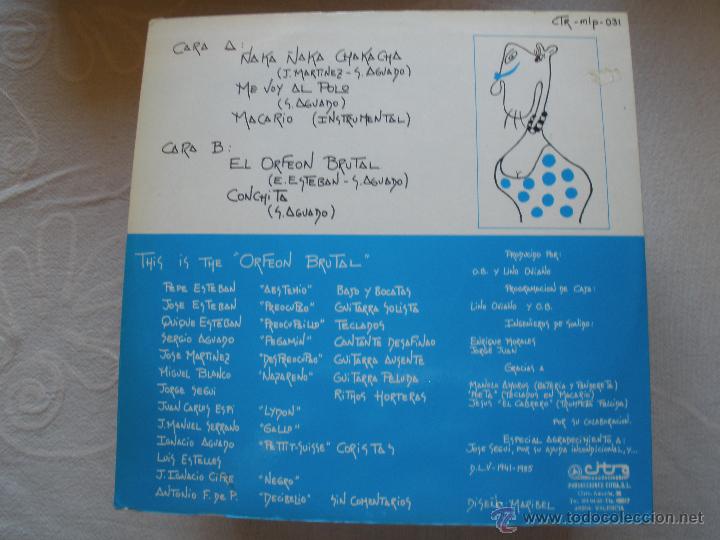 CTR-mlp-031
CARA A:
ÑAKA ÑAKA CHAKACHA
(J. MARTINEZ - S. AGUADO)
ME VOY AL POLO
(S. AGUADO)
MACARIO (INSTRUMENTAL)
CARA B:
EL ORFEON BRUTAL
(E. ESTEBAN - S. AGUADO)
CONCHITA
(S. AGUADO)
THIS IS THE "ORFEON BRUTAL"
PEPE ESTEBAN "ABSTEMIO" BAJO Y BOCATAS
JOSE ESTEBAN "PREOCUPAO" GUITARRA SOLISTA
QUIQUE ESTEBAN "PREOCUPAILLO" TECLADOS
SERGIO AGUADO "PEGAMIN" CANTANTE DESAFINAO
JOSE MARTINEZ "DESPREOCUPAO" GUITARRA AUSENTE
MIGUEL BLANCO "NAZARENO" GUITARRA PELUDA
JORGE SEGUI RITMOS HORTERAS
JUAN CARLOS ESPI "LYDON"
J. MANUEL SERRANO "GALLO"
IGNACIO AGUADO "PETTIT-SUISSE" CORISTAS
LUIS ESTELLES
J. IGNACIO CIFRE "NEGRO"
ANTONIO F. DE P. "DECIBELIO" SIN COMENTARIOS
PRODUCIDO POR:
O.B. Y LINO OVIANO
PROGRAMACION DE CAJA:
LINO OVIANO Y O.B.
INGENIEROS DE SONIDO:
ENRIQUE MORALES
JORGE JUAN
GRACIAS A
MANOLO AMOROS (BATERIA Y PANDERETA)
"META" (TECLADOS EN MACARIO)
JESUS "EL CABRERO" (TROMPETA FELICIDA)
POR SU COLABORACION.
ESPECIAL AGRADECIMIENTO A:
JOSE SEGUI, POR SU AYUDA INCONDICIONAL, Y...
D.L.V-1941-1985
citra
PRODUCCIONES CITRA, S.L.
VALENCIA
DISEÑO MARIBEL
todocoleccion.net